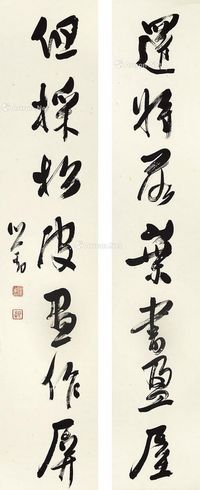 還將落葉書盈屋
但採松皮畫作屏
心畬